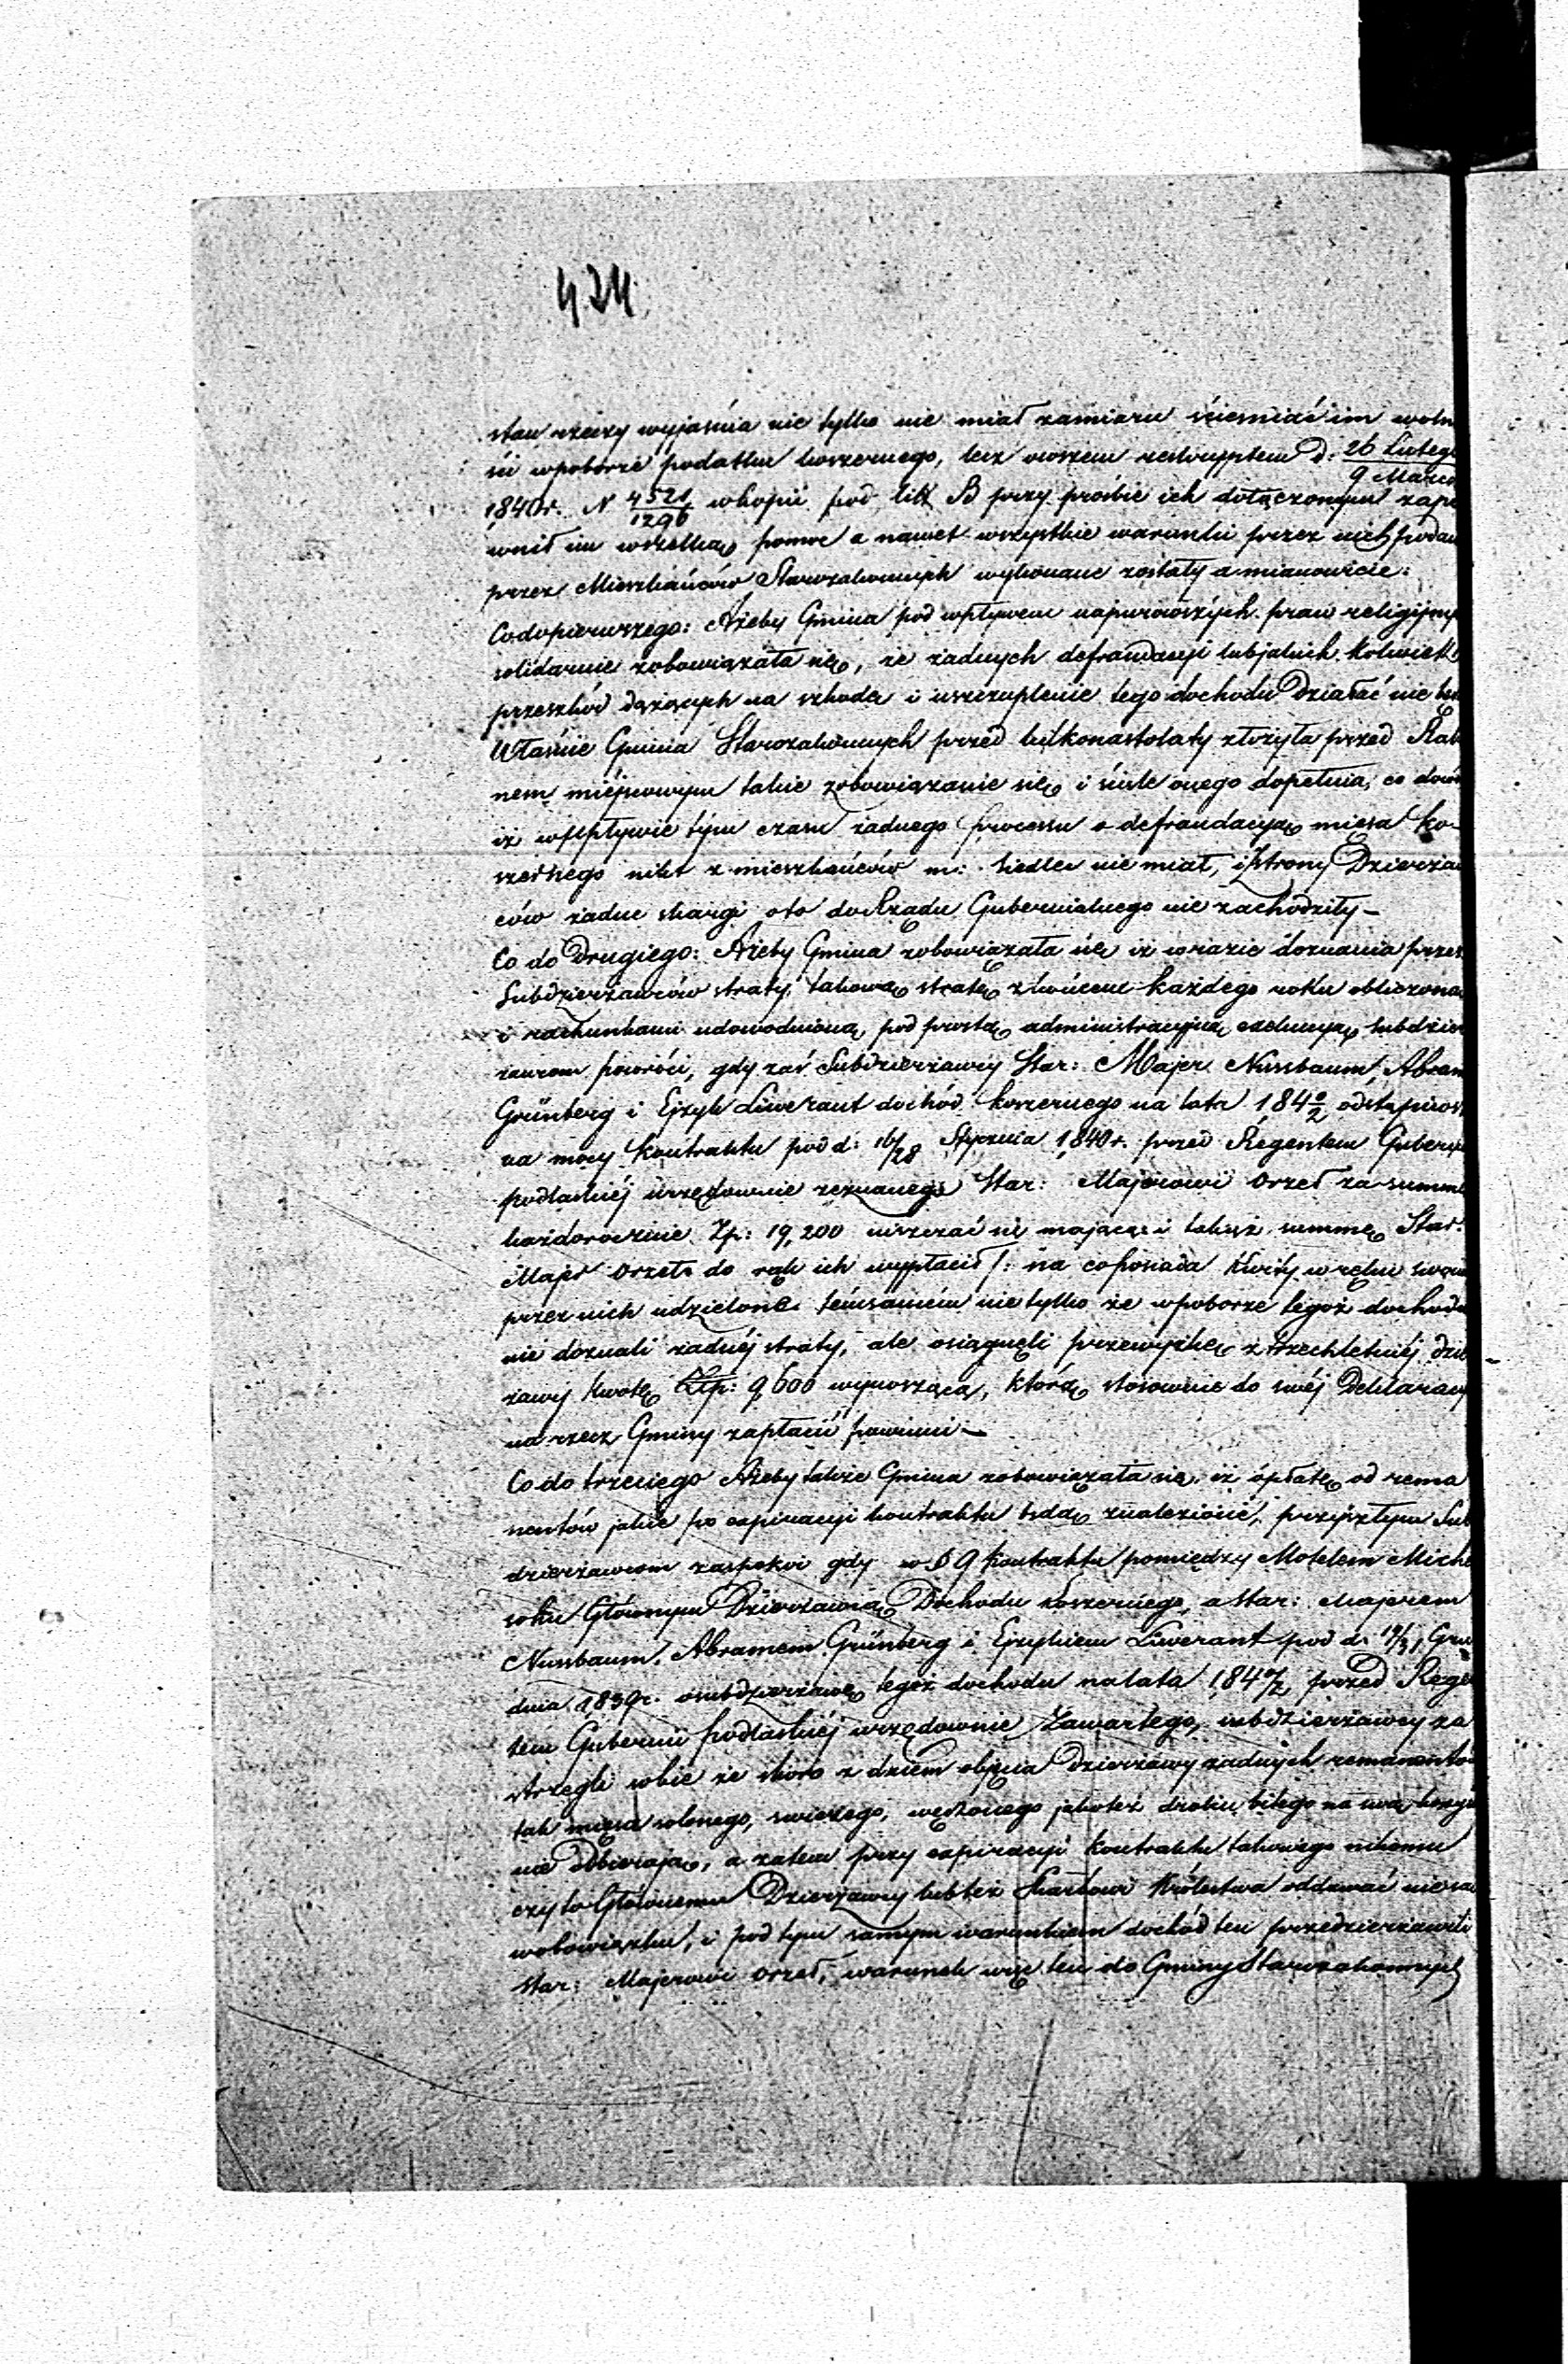 424.
stan rzeczy wyjaśnia nie tylko nie miał zamiaru ścieśniać im woln
ści w poborze podatku koszernego, lecz owszem reskryptem d: 26 Lutego
9 Marca
1840 r. N 4521/1296 w kopii pod lit: B przy prośbie ich dołączonym zape
wnił im wszelką pomoc a nawet wszystkie warunki przez nich podan
przez Mieszkańców Starozakonnych wykonane zostały a mianowicie:
Co do pierwszego: Ażeby Gmina pod wpływem najsurowszych praw religijny
solidarnie zobowiązała się, że żadnych defraudacyi lub jakich kolwiek
przeszkód dążących na szkodę i uszczuplenie tego dochodu Działać nie bę
Właśnie Gmina Starozakonnych przed kilkonastolaty złożyła przed Rab
nem miejscowym takie zobowiązanie się i ściśle onego dopełnia, co dowo
iż w upływie tym czasu żadnego processu o defraudacyą mięsa ko-
szernego nikt z mieszkańców m: Siedlec nie miał, i z strony Dzierżaw
ców żadne skargi oto do Rządu Gubernialnego nie zachodziły —
Co do Drugiego: Ażeby Gmina zobowiązała się iż w razie doznania przez
Subdzierżawców straty, takową stratę z końcem każdego roku obliczoną
i rachunkami udowodnioną, pod prostą administracyjną exekucyą subdzier
żawcom powróci, gdy zaś Subdzierżawcy Star: Majer Nussbaum, Abram
Grünberg i Ejzyk Liwerant dochód koszernego na lata 184 0/2 odstąpiws
na mocy kontraktu pod d: 16/28 Stycznia 1840 r. przed Regentem Gubernii
podlaskiéj urzędownie zeznanego Star: Majerowi Orzeł za summę
każdorocznie Zp: 19,200 uiszczać się mającą i takąż summę Star:
Majer Orzeł do rąk ich wypłacił /: na co posiada Kwity w ręku swoim
przez nich udzielone temsamém nie tylko że w poborze tegoż dochodu
nie doznali żadnéj straty, ale osiągnęli przewyżkę z trzechletniéj dzie
żawy kwotę Złp: 9,600 wynoszącą, którą stosownie do swéj Deklaracyi
na rzecz Gminy zapłacić powinni —
Co do trzeciego Ażeby także Gmina zobowiązała się, iż opłatę od rema
nentów jakie po expiracyi kontraktu będą znalezione, przyszłym Sub
dzierżawcom zaspokoi gdy w § 9 kontraktu pomiędzy Motelem Michel
sohn Głównym Dzierżawcą Dochodu koszernego, a Star: Majerem
Nussbaum, Abramem Grünberg i Ejzykiem Liwerant pod d. 19/31 Gru
dnia 1839 r. o subdzierżawę tegoż dochodu na lata 184 0/2 przed Rege
tem Gubernii podlaskiéj urzędownie zawartego, subdzierżawcy za
strzegli sobie że skoro z dniem objęcia Dzierżawy żadnych remanentów
tak mięsa solonego, swieżego, wędzonego jakoteż drobiu bitego na swą korzyść
nie odbierają, a zatem przy expiracyi kontraktu takowego nikomu
czy to Głównemu Dzierżawcy lub też Skarbowi Królestwa oddawać nie są
w obowiązku, i pod tym samym warunkiem dochód ten przedzierżawili
star: Majerowi Orzeł, warunek więc ten do Gminy Starozakonnych